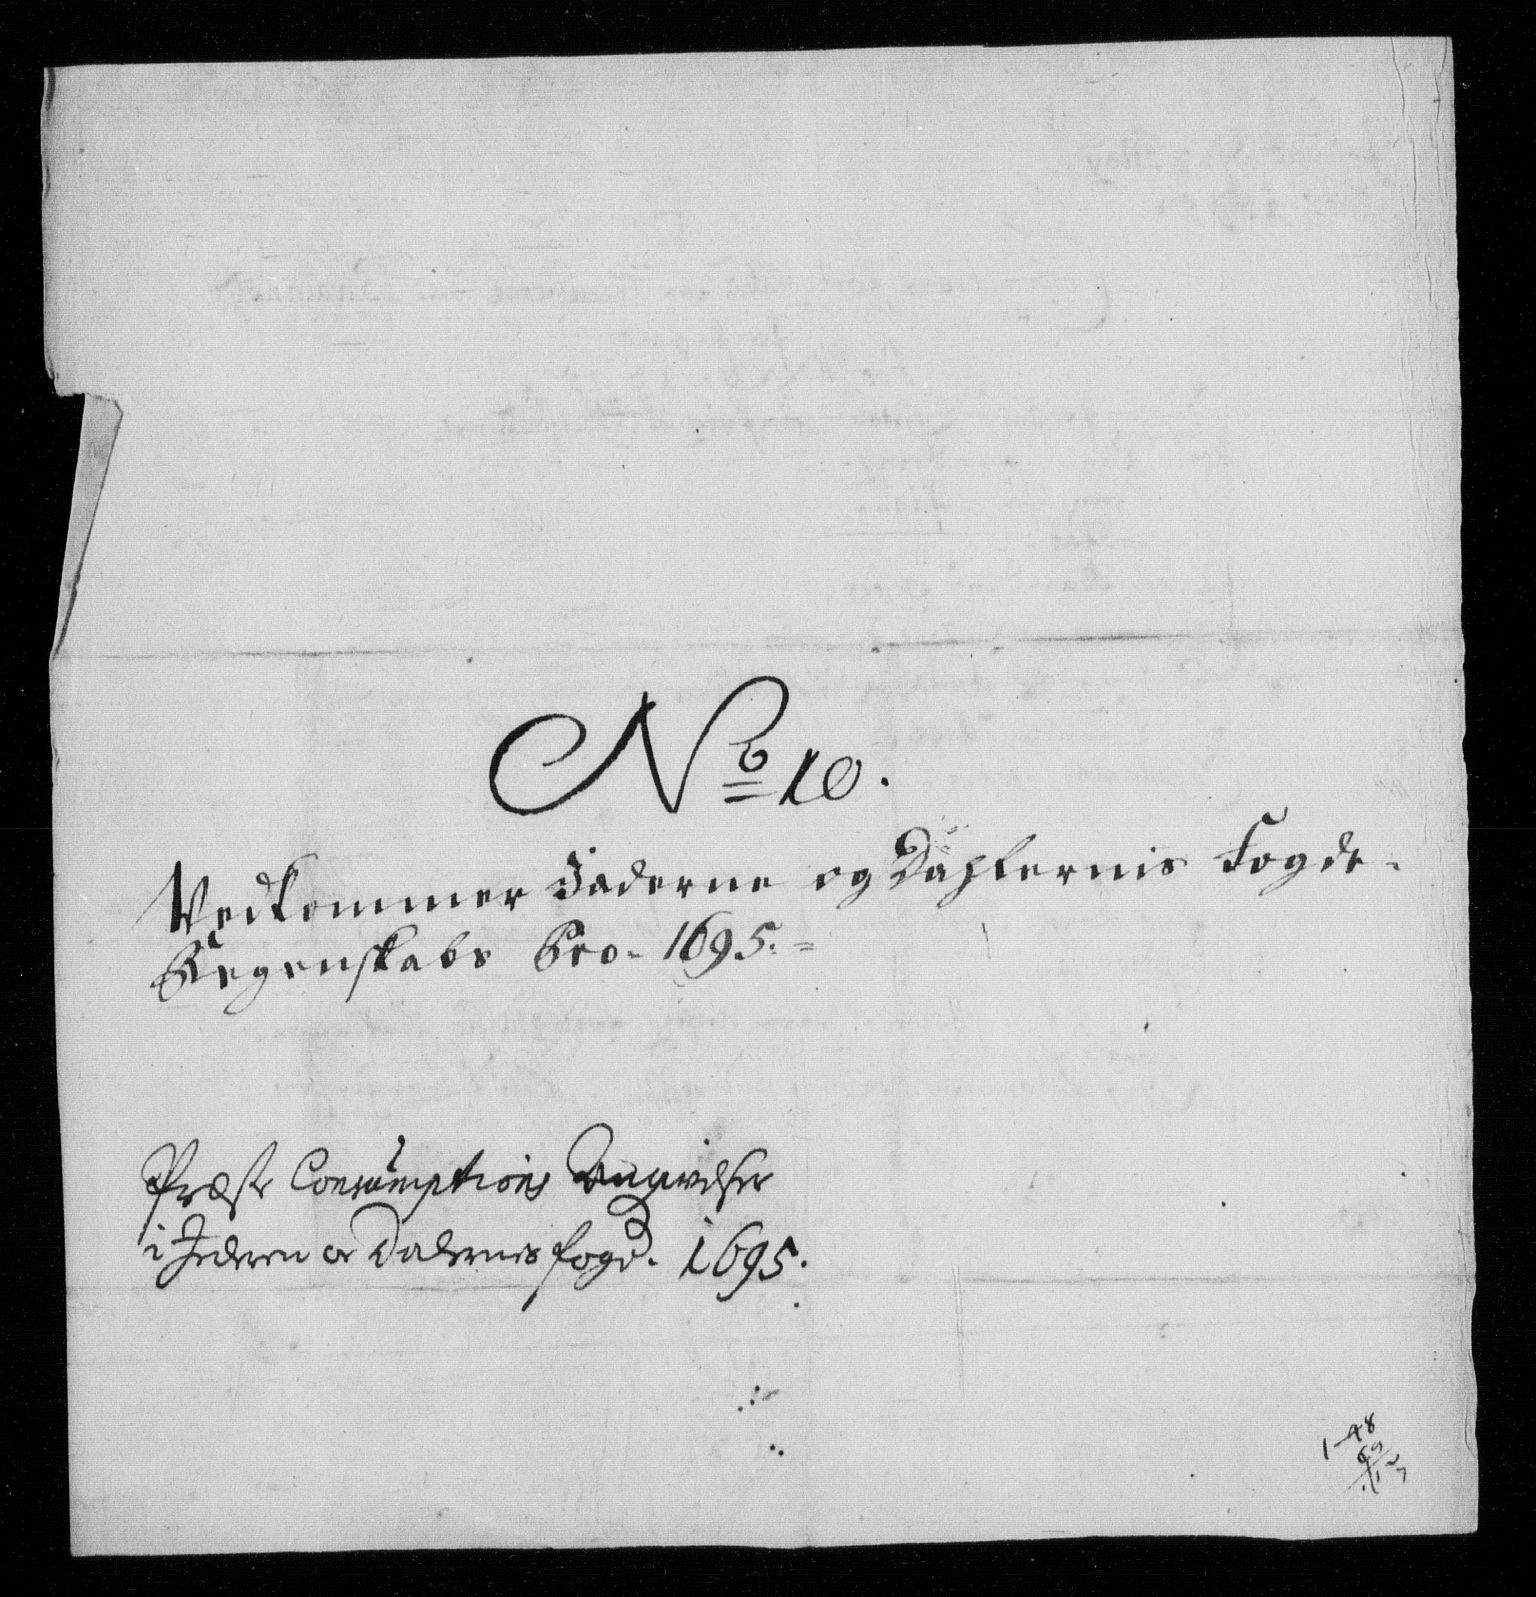 No 10.
Vedkommer Jaderne og Dahlernis Fogde-
Regenskabs Pro. 1695.=
Præste Consumptions Angivelser
i Jederen oc Dalernis fogd. 1695.
1-48